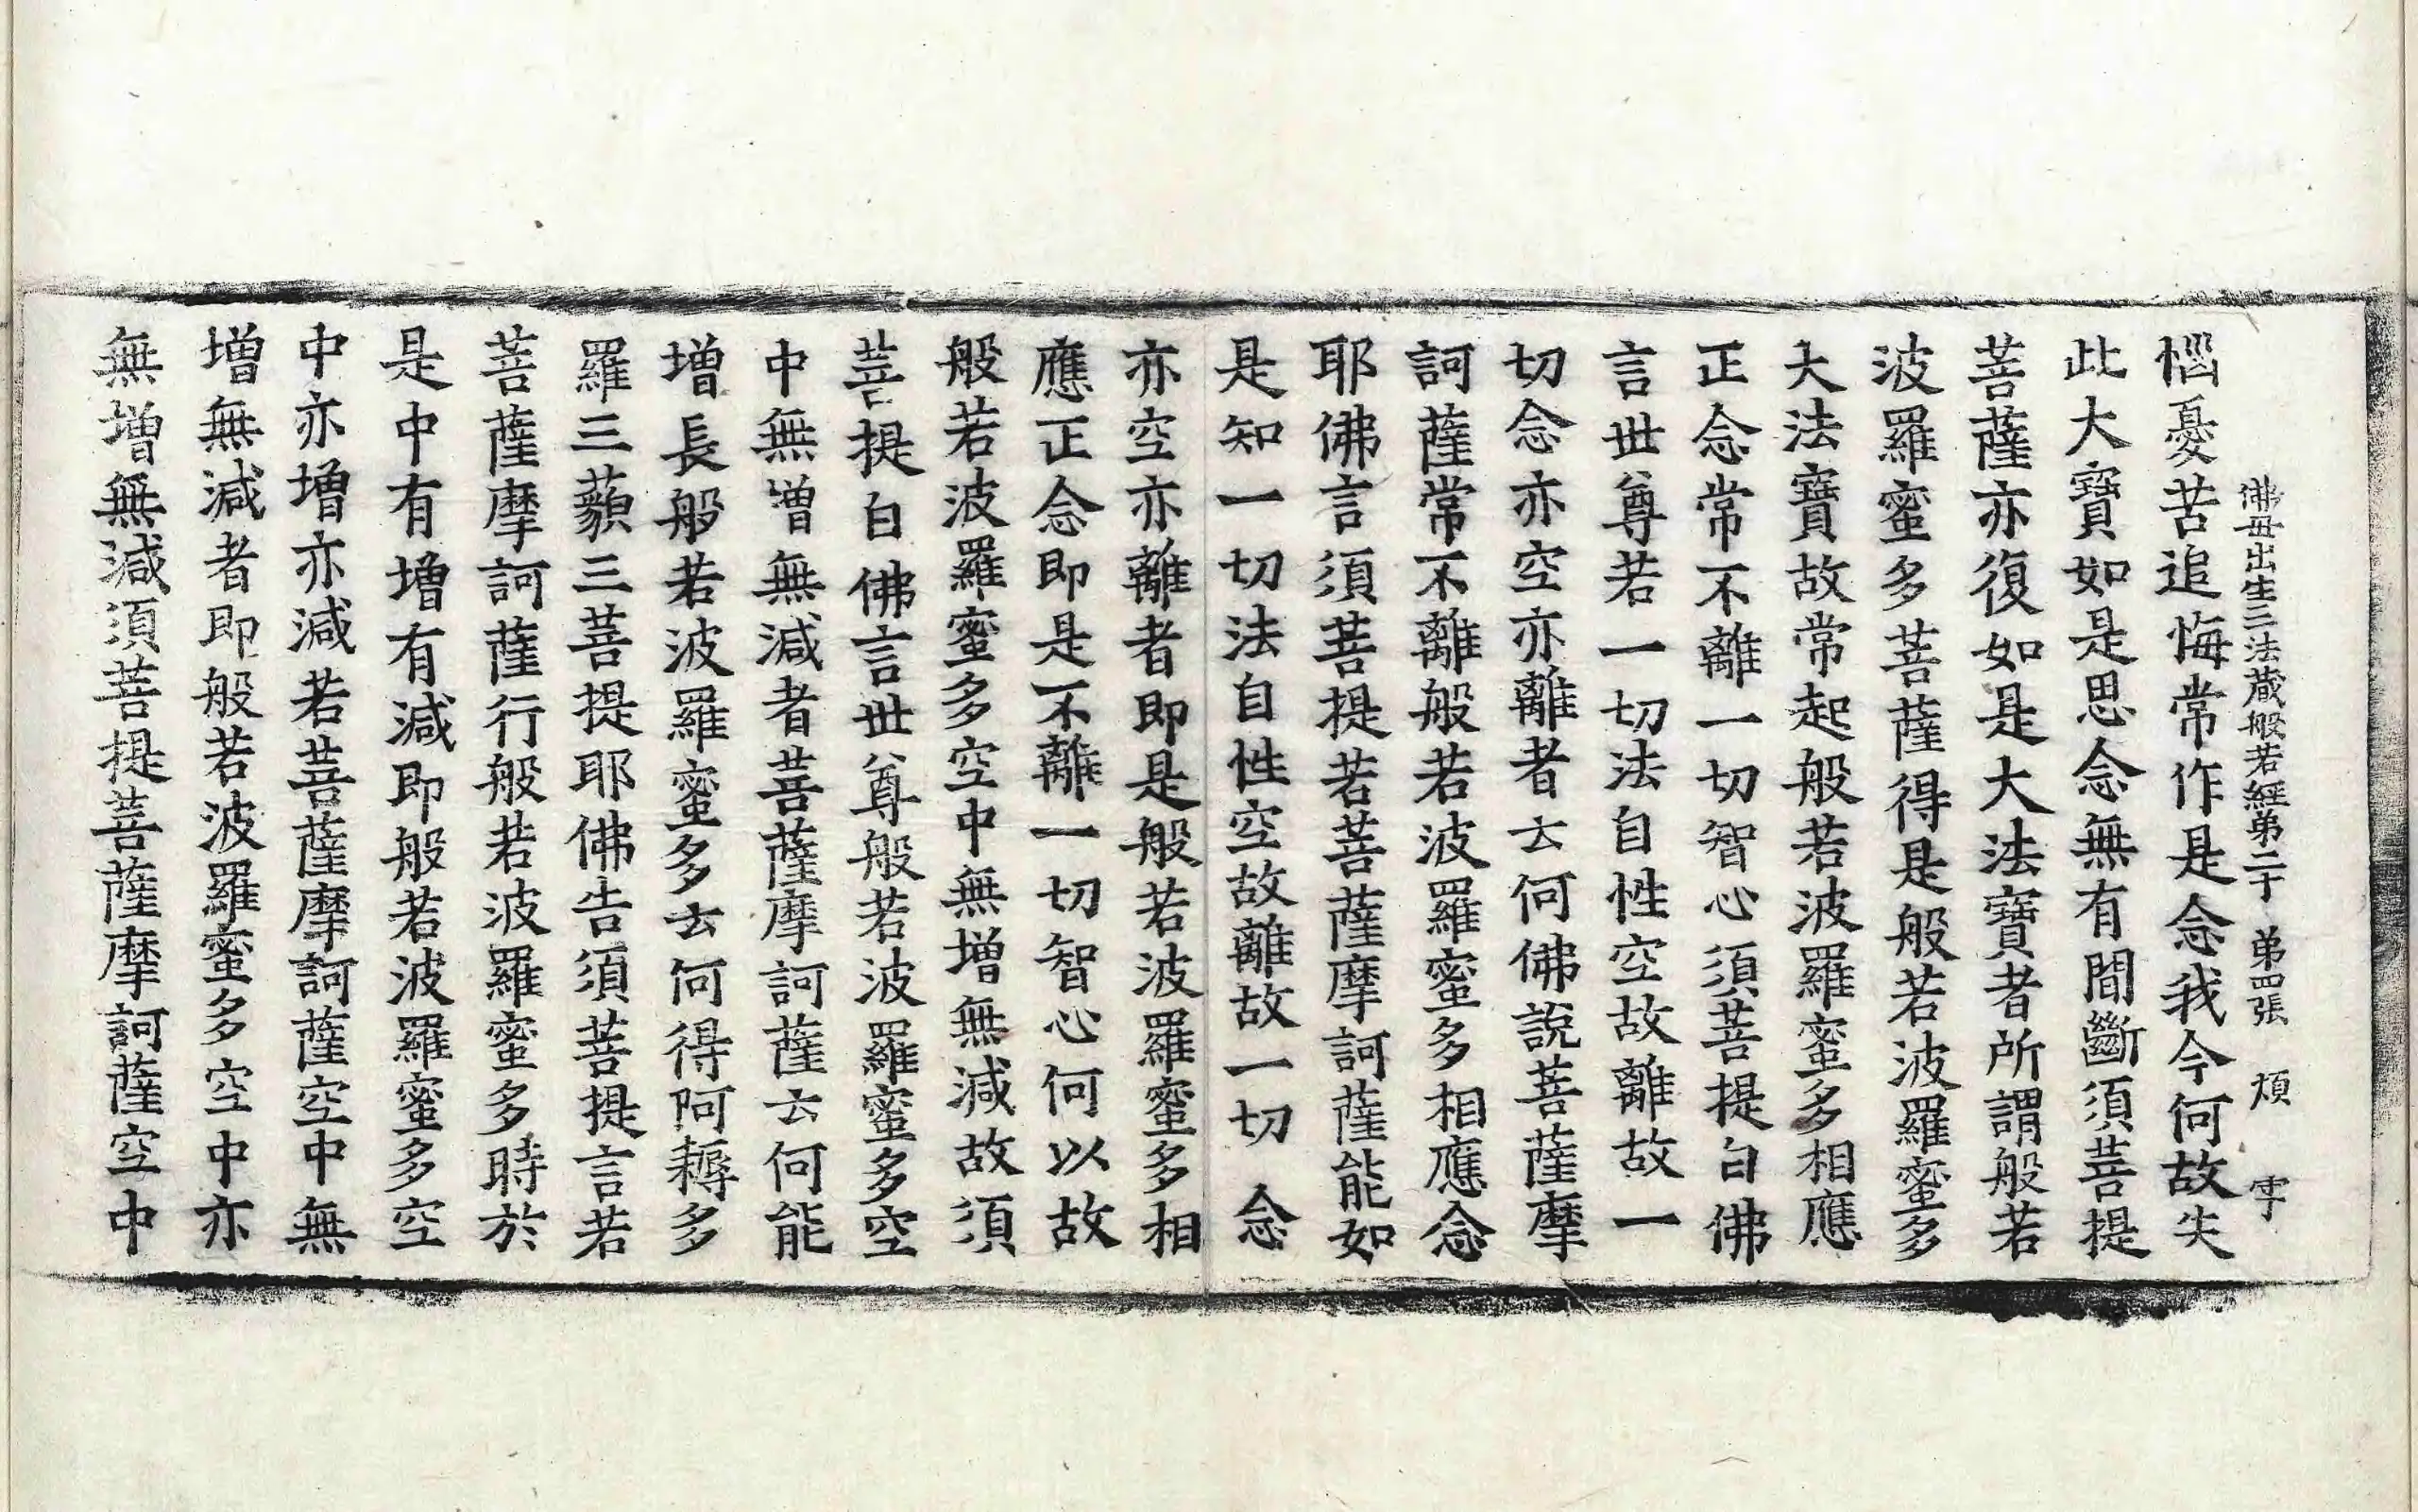 佛母出生三法藏般若經第二十 第四張 煩 字
惱憂苦追悔常作是念我今何故失
此大寶如是思念無有間斷須菩提
菩薩亦復如是大法寶者所謂般若
波羅蜜多菩薩得是般若波羅蜜多
大法寶故常起般若波羅蜜多相應
正念常不離一切智心須菩提白佛
言世尊若一切法自性空故離故一
切念亦空亦離者云何佛說菩薩摩
訶薩常不離般若波羅蜜多相應念
耶佛言須菩提若菩薩摩訶薩能如
是知一切法自性空故離故一切念
亦空亦離者即是般若波羅蜜多相
應正念即是不離一切智心何以故
般若波羅蜜多空中無增無減故須
菩提白佛言世尊般若波羅蜜多空
中無增無減者菩薩摩訶薩云何能
增長般若波羅蜜多云何得阿耨多
羅三藐三菩提耶佛告須菩提言若
菩薩摩訶薩行般若波羅蜜多時於
是中有增有減即般若波羅蜜多空
中亦增亦減若菩薩摩訶薩空中無
增無減者即般若波羅蜜多空中亦
無增無減須菩提菩薩摩訶薩空中